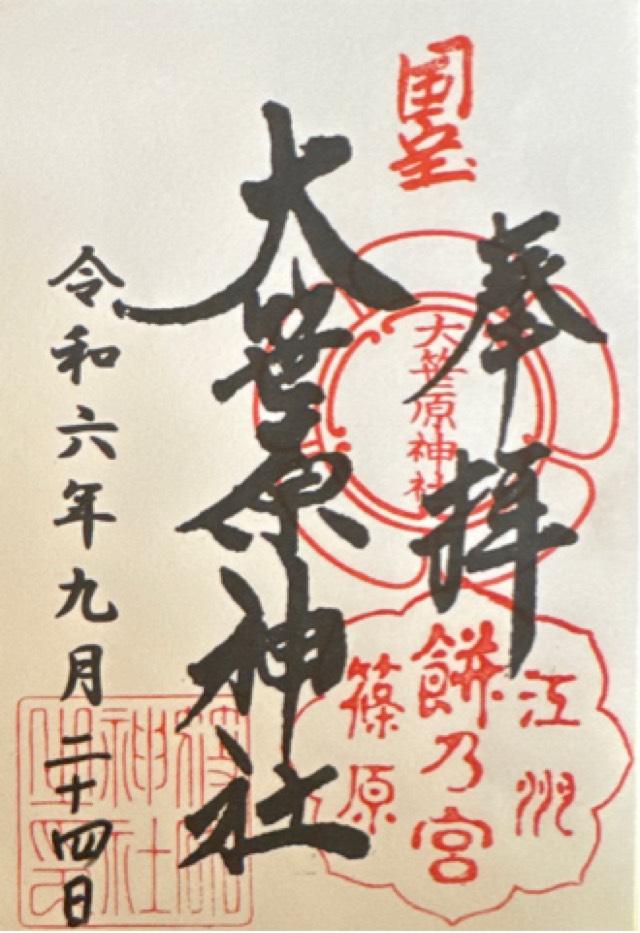 国宝
奉拝
大笹原神社
江州
餅乃宮
篠原
大笹原神社
令和六年九月二十四日
神社